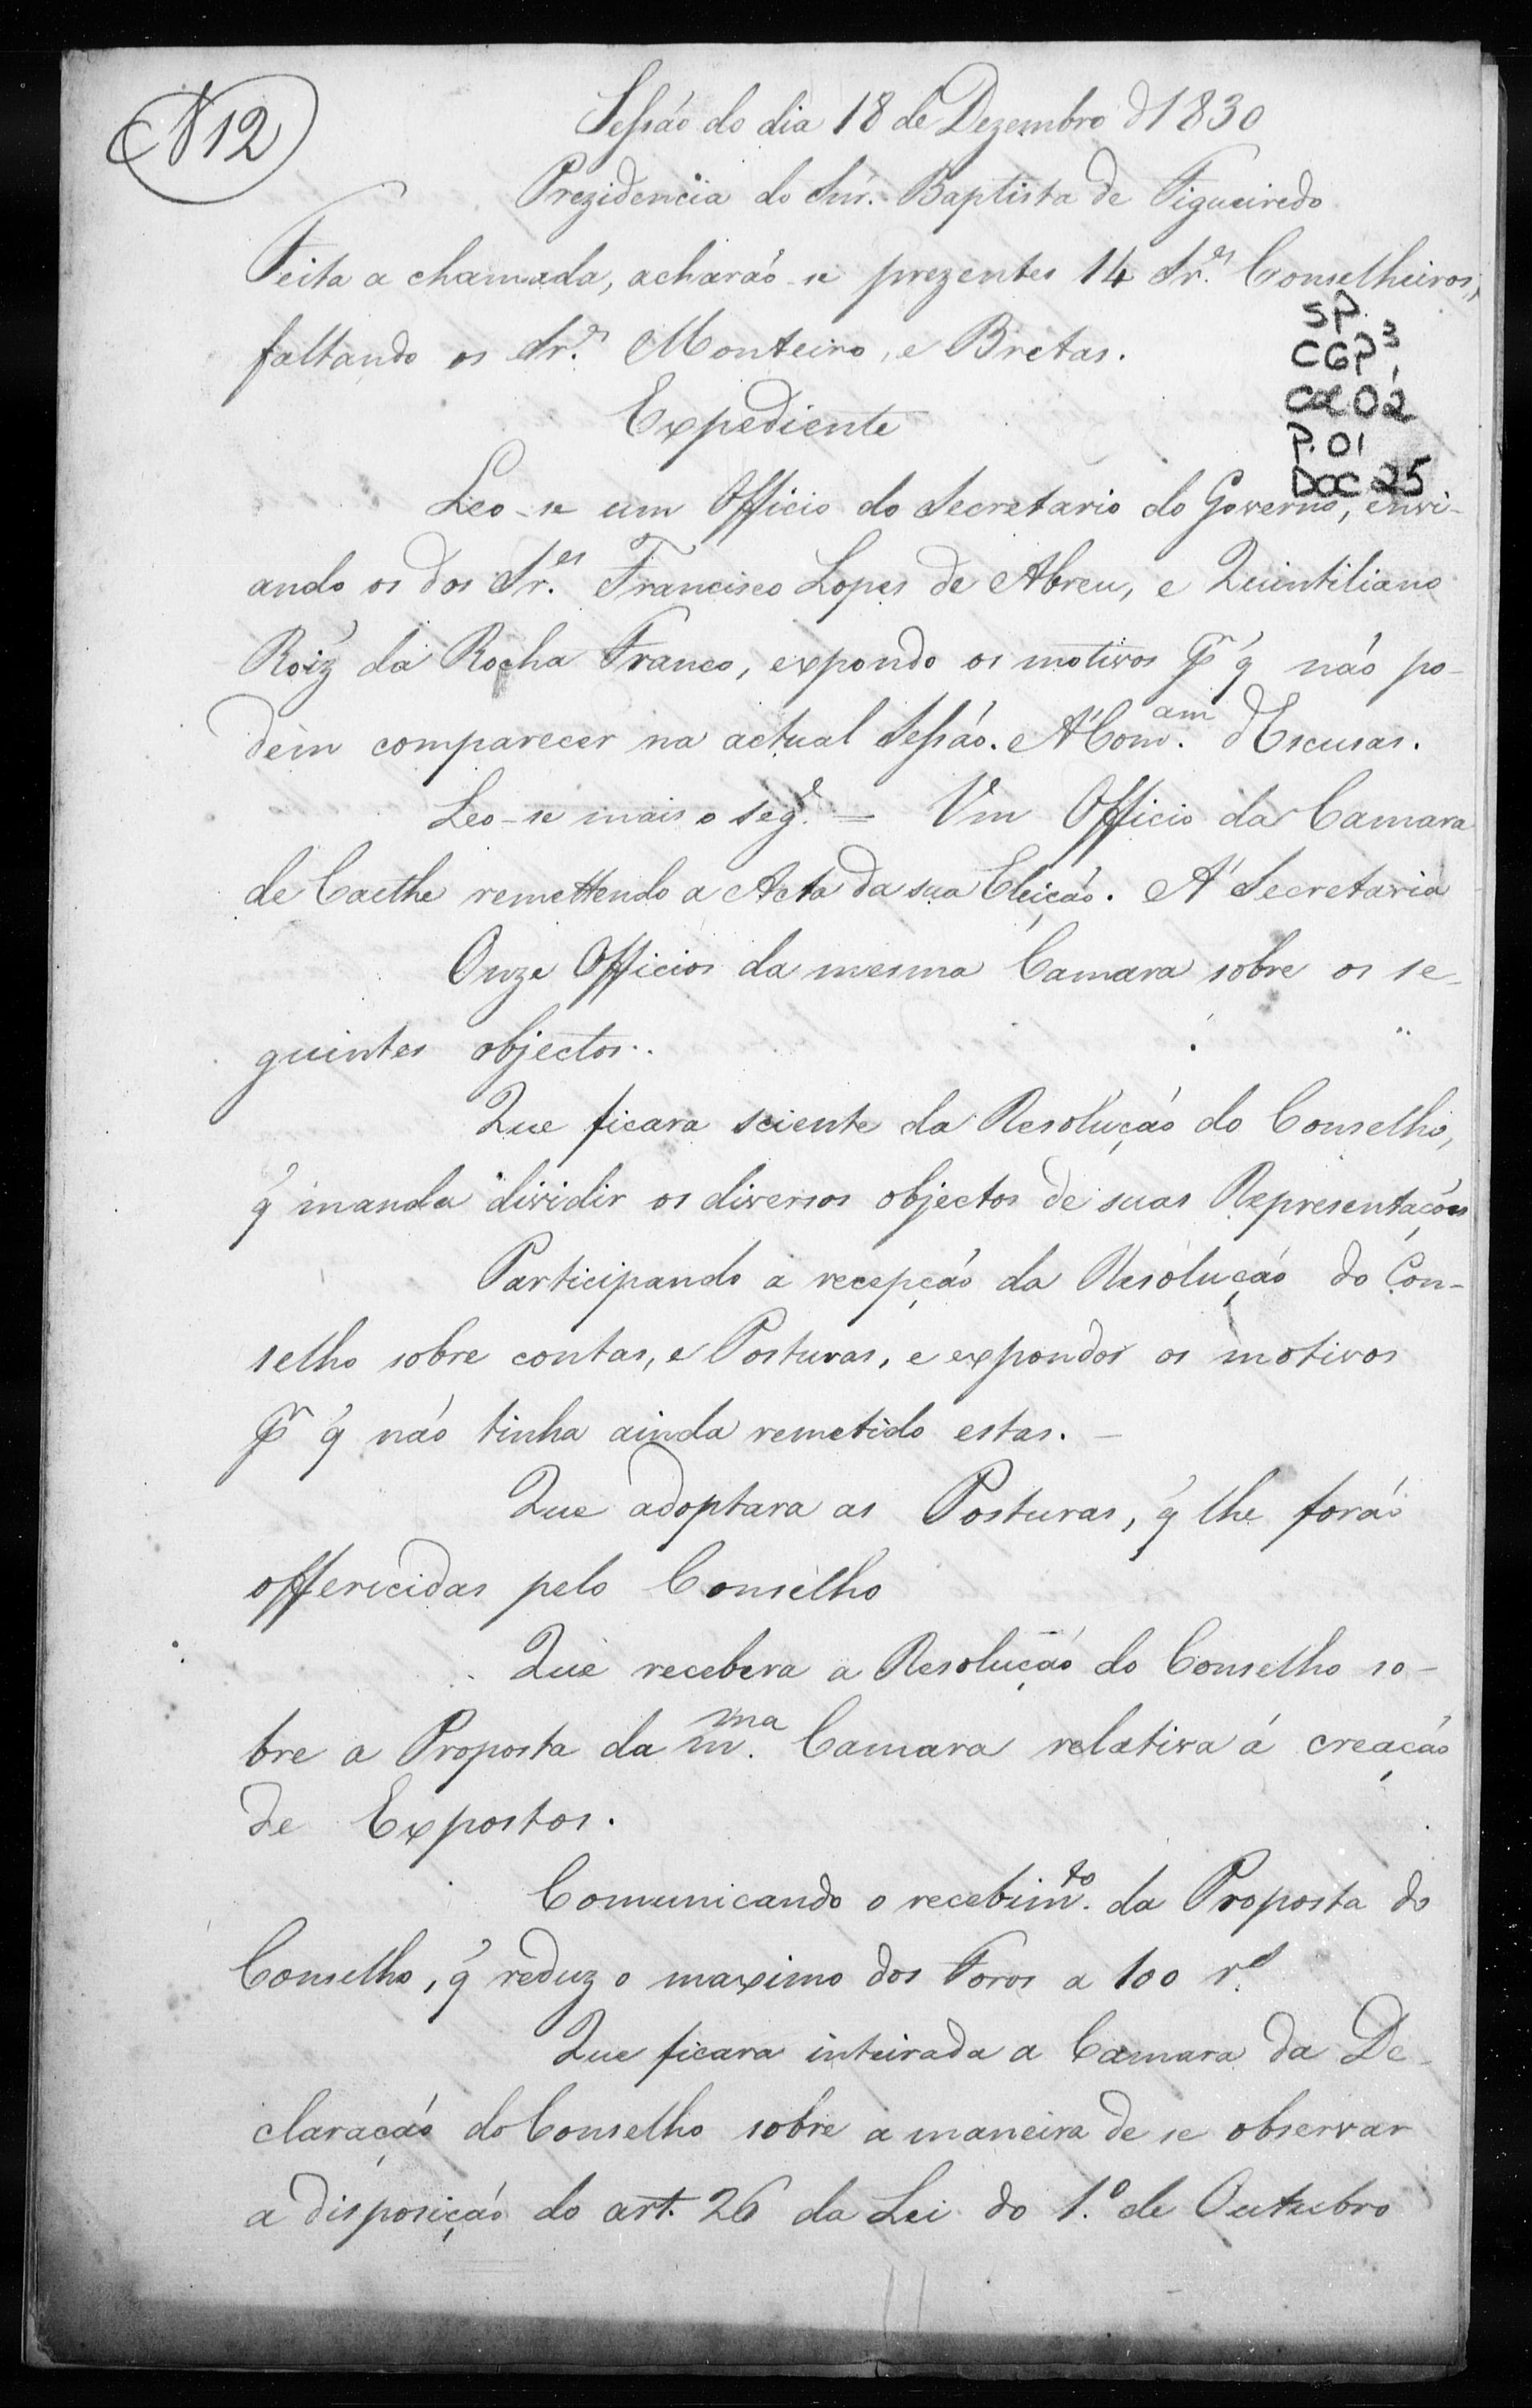 N 12
Sessáo do dia 18 de Dezembro d 1830
Prezidencia do Snr. Baptista de Figueiredo
Feita a chamada, acharáo-se prezentes 14 Sr.es Conselheiros,
faltando os Sr.es Monteiro, e Bretas.
SP.
CGP3,
CX 02
P. 01
DOC 25
Expediente
Leo-se um Officio do Secretario do Governo, envi-
ando os dos Sr.es Francisco Lopes de Abreu, e Quintiliano
Roiz da Rocha Franco, expondo os motivos pr q̃ náo po-
dem comparecer na actual Sessáo. A' Com.am d'Escusas.
Leo-se mais o seg.e = Um Officio da Camara
de Caethe remettendo a Acta da sua Eleiçáo. A' Secretaria
Onze Officios da mesma Camara sobre os se-
guintes objectos.
Que ficara sciente da Resoluçáo do Conselho,
q̃ manda dividir os diversos objectos de suas Representaçóes
Participando a recepçáo da Resoluçáo do Con-
selho sobre contas, e Posturas, e expondo os motivos
pr q̃ náo tinha ainda remetido estas. -
Que adoptara as Posturas, q̃ lhe foráo
offerecidas pelo Conselho
Que recebera a Resoluçáo do Conselho so-
bre a Proposta da m.ma Camara relativa á creaçáo
de Expostos.
Comunicando o recebim.to da Proposta do
Conselho, q̃ reduz o maximo dos Foros a 100 r.s
Que ficara inteirada a Camara da De-
claraçáo do Conselho sobre a maneira de se observar
a disposiçáo do art. 26 da Lei do 1.º de Outubro